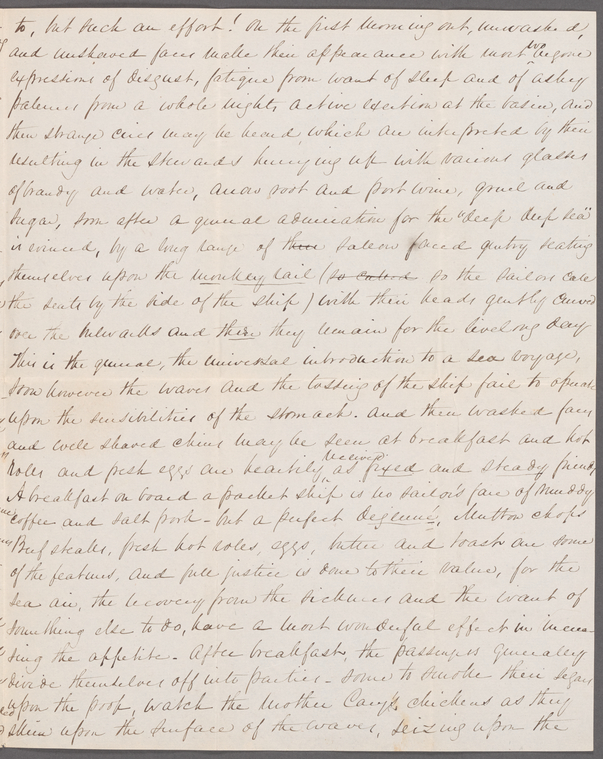 to, but such an effort! On the first morning out, unwashed,
and unshaved faces make their appearance with most woe begone
expressions of disgust, fatigue from want of sleep and of ashey
paleness from a whole night, active exertion at the basin, and
then strange cries may be heard, which are interpreted by their
resulting in the stewards hurrying up with various glasses
of brandy and water, and port wine, gruel and
Sugar, soon after a general admiration for the "deep deep sea"
is evinced, by a long range of saloon faced gentry seating
themselves upon the monkey rail (so called so the sailors call
the seats by the side of the ship) with their heads gently curved
over the bulwarks and there they remain for the livelong day
This is the general, the universal introduction to a sea voyage,
soon however the waves and the tossing of the ship fail to operate
upon the sensibilities of the stomach. And then washed faces
and well shaved chins may be seen at breakfast and hot
roles and fresh eggs are heartily received as fixed and steady friends
A breakfast on board a packet ship is no sailor's fare of muddy
coffee and salt pork - but a perfect Mutton chops
Beef steaks, fresh hot roles, eggs, butter and toast are some
of the features, and full justice is done to their value, for the
sea air, the recovery from the sickness and the want of
something else to do, have a most wonderful effect in increa-
sing the appetite - After breakfast, the passengers generally
divide themselves off into parties - some to smoke their segars
upon the poop, watch the Mother Cary's chickens as they
skim upon the surface of the waves, seizing upon the